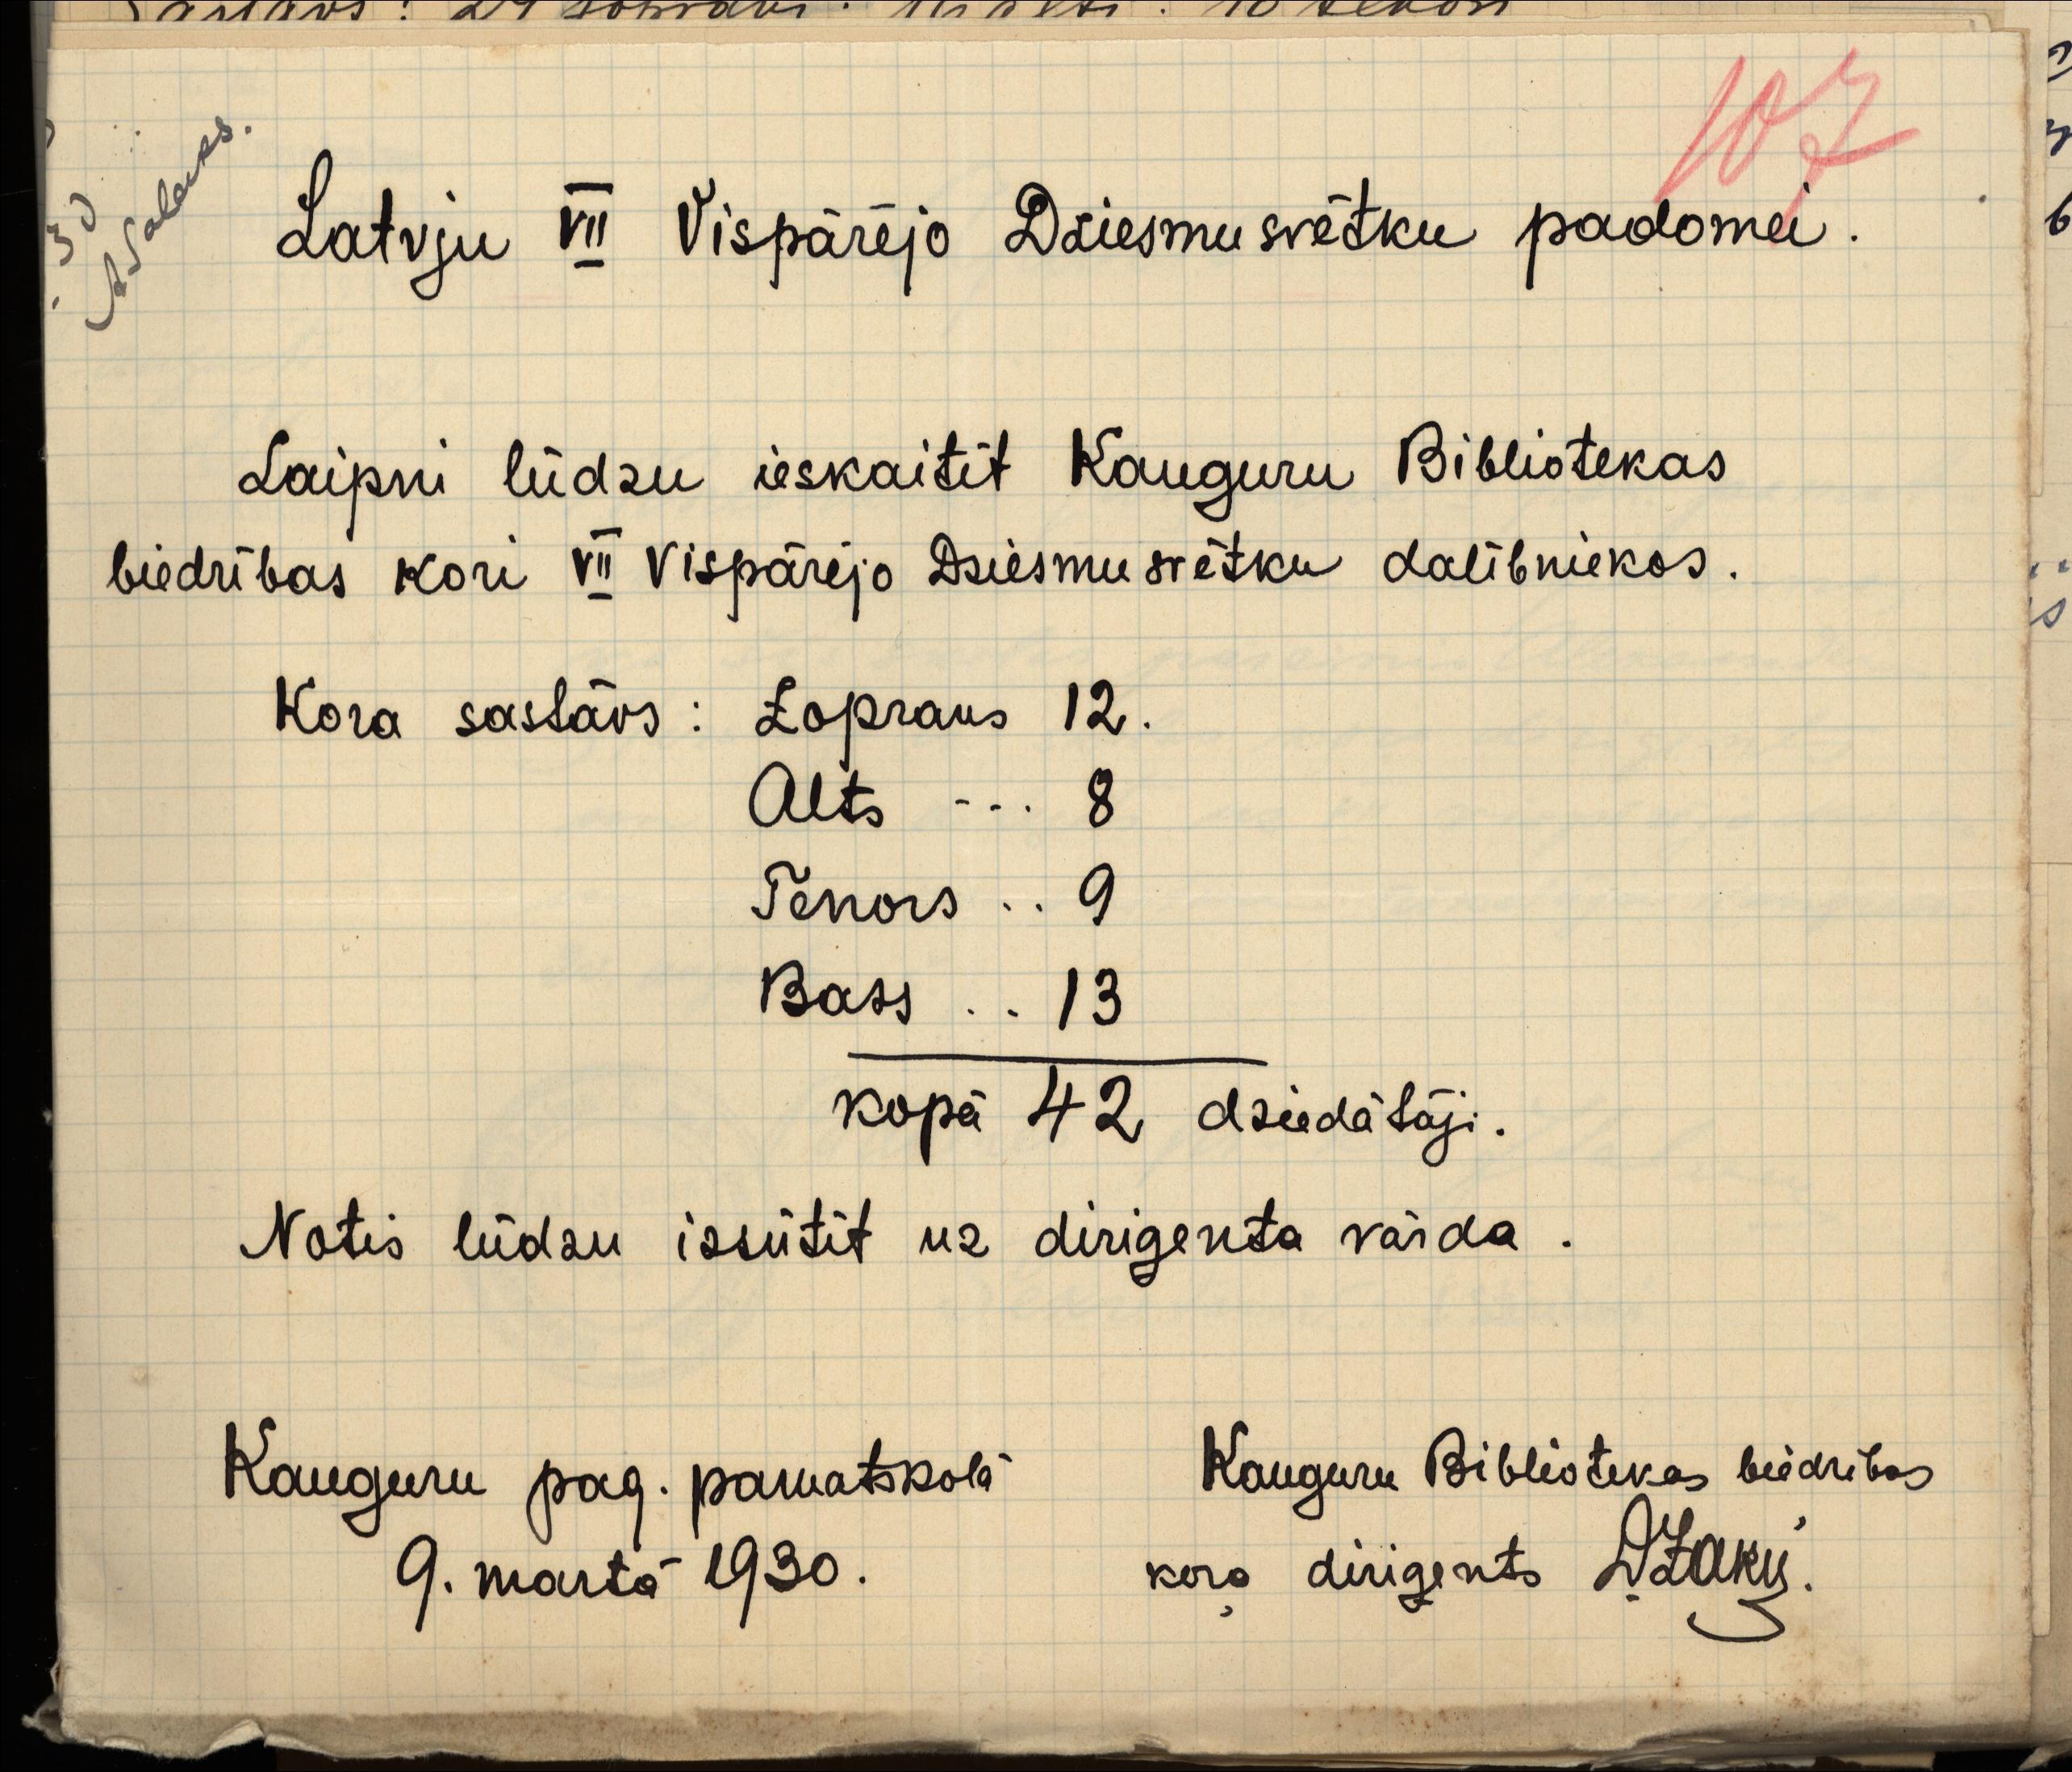 107
Latvju VII Vispārējo Dziesmusvētku padomei.
Laipni lūdzu ieskaitīt Kauguru Bibliotekas
biedrības kori VII Vispārējo Dziesmusvētku dalībniekos.
Kora sastāvs: Soprans 12.
Alts --. 8
Tenors .. 9
Bass .. 13
kopā 42 dziedātāji.
Notis lūdzu izsūtīt uz dirigenta vārda.
Kauguru pag. pamatskolā
9. martā 1930.
Kauguru Bibliotekas biedrības
kora dirigents